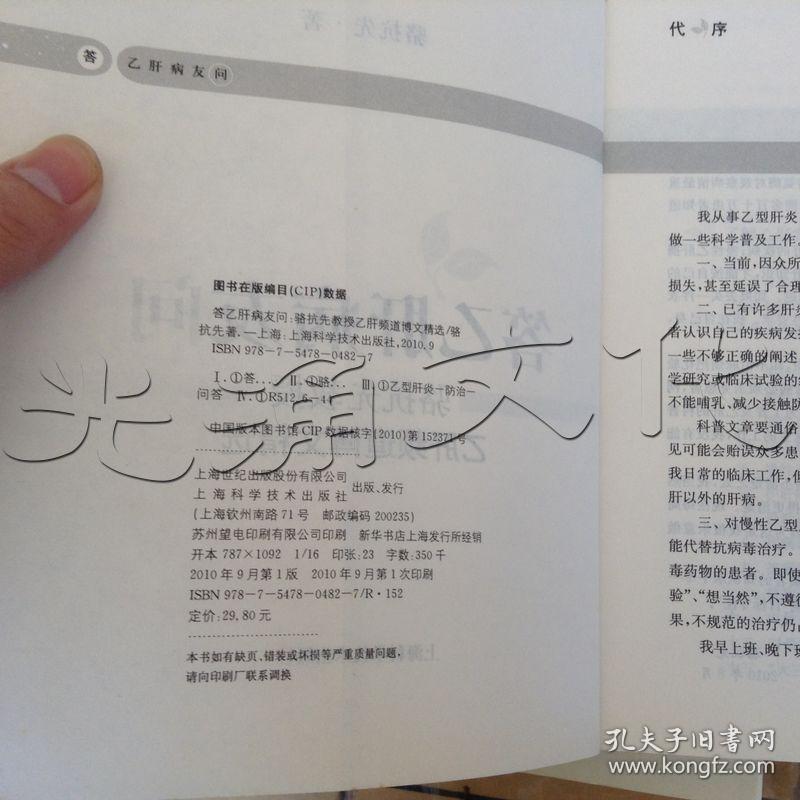 答 乙肝病友问
图书在版编目(CIP)数据
答乙肝病友问:骆抗先教授乙肝频道博文精选/骆
抗先著.—上海:上海科学技术出版社,2010.9
ISBN 978-7-5478-0482-7
Ⅰ.①答… Ⅱ.①骆… Ⅲ.①乙型肝炎-防治-
问答 Ⅳ.①R512.6-44
中国版本图书馆CIP数据核字(2010)第152371号
上海世纪出版股份有限公司
上海科学技术出版社 出版、发行
(上海钦州南路71号 邮政编码200235)
苏州望电印刷有限公司印刷 新华书店上海发行所经销
开本 787×1092 1/16 印张:23 字数:350千
2010年9月第1版 2010年9月第1次印刷
ISBN 978-7-5478-0482-7/R·152
定价:29.80元
本书如有缺页、错装或坏损等严重质量问题,
请向印刷厂联系调换
代 序
我从事乙型肝炎
做一些科学普及工作。
一、当前,因众所
损失,甚至延误了合理
二、已有许多肝炎
者认识自己的疾病发
一些不够正确的阐述
学研究或临床试验的
不能哺乳、减少接触防
科普文章要通俗
见可能会贻误众多患
我日常的临床工作,但
肝以外的肝病。
三、对慢性乙型
能代替抗病毒治疗。
毒药物的患者。即使
验”、“想当然”,不遵
果,不规范的治疗仍
我早上班、晚下班
孔夫子旧书网
www.kongfz.com